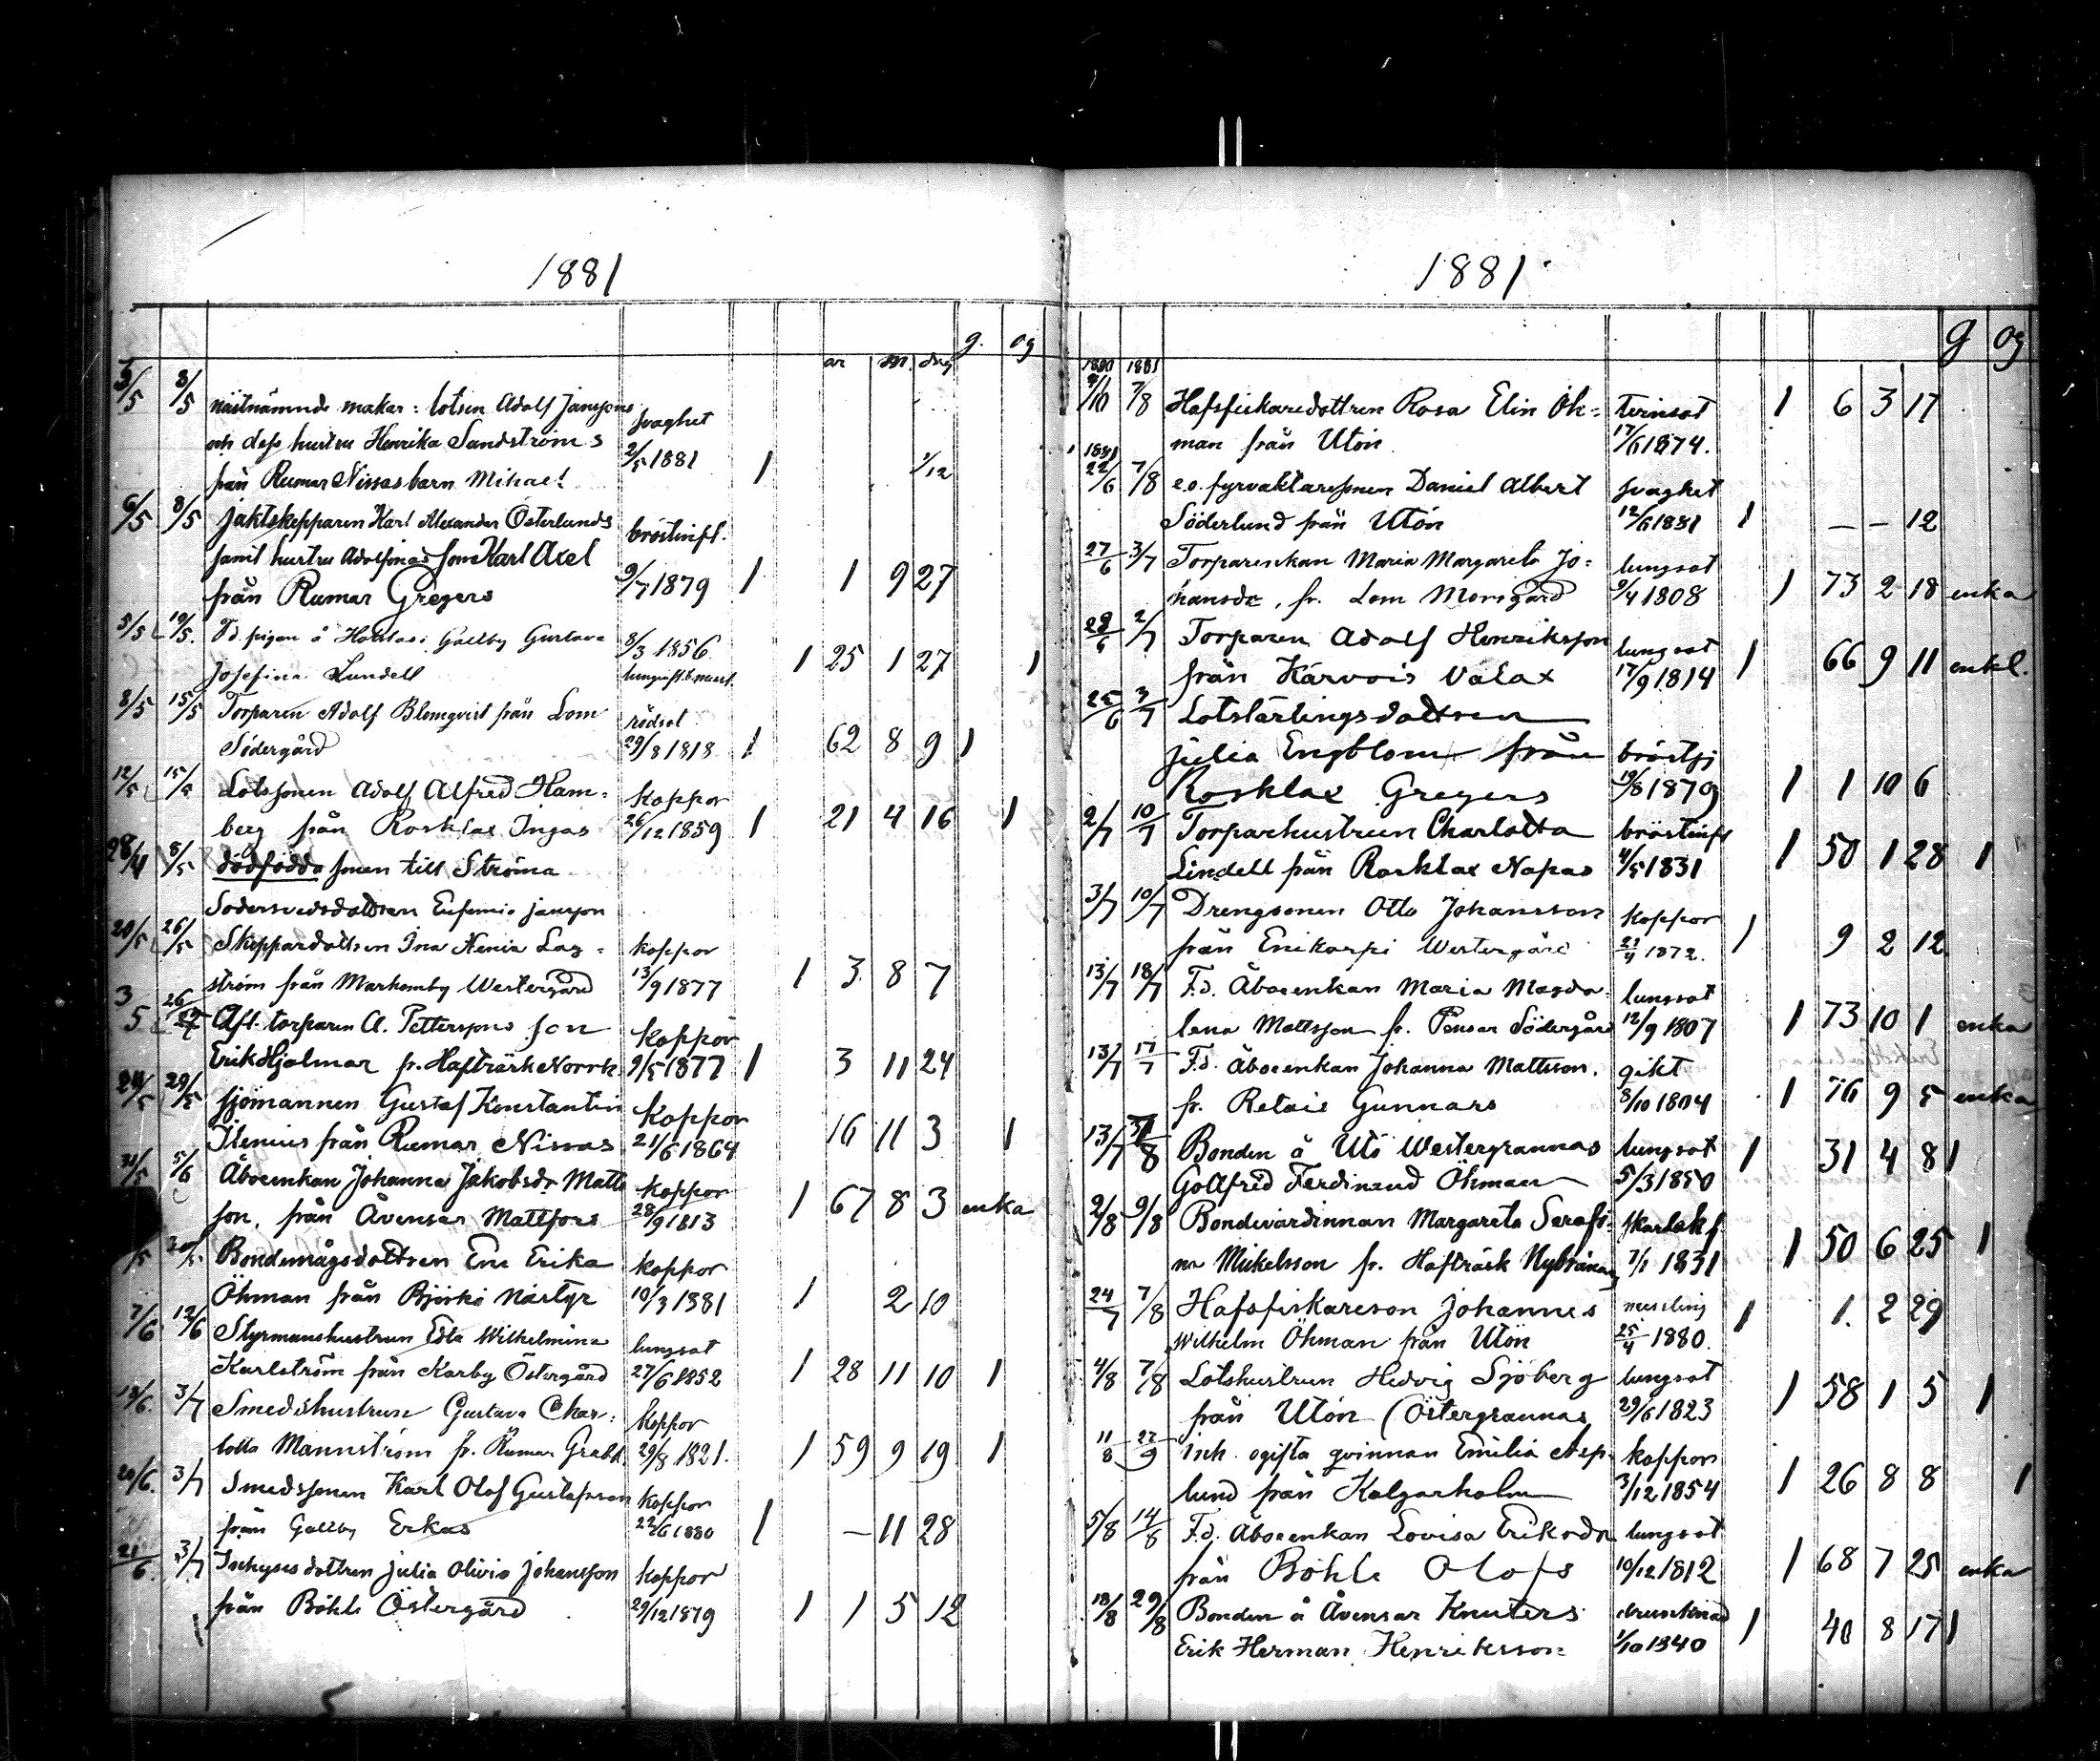 1881
g. og
år m dag
3/5 8/5 nästnämnde makar: lotsen Adolf Janssons svaghet
och dess hustru Henrika Sandströms 2/5 1881 1 1/12
från Rumar Nissas barn Mihael
6/5 8/5 jaktskepparen Karl Alexander Österlunds bröstinfl.
samt hustru Adolfinas son Karl Axel
från Rumar Gregers 9/7 1879 1 1 9 27
5/5 19/5 Fd. pigan å Galtby Gustava 8/3 1856
Josefina Lundell 1 25 1 27 1
8/5 15/5 Torparen Adolf Blomqvist från Lom rödsot
Södergård 29/8 1818 1 62 8 9 1
12/5 15/5 Lotssonen Adolf Alfred Ham- koppor
berg från Rosklax Ingas 26/12 1859 1 21 4 16 1
28/4 8/5 dödfödda sonen till Ströma
dottren Eufemia jansson
20/5 26/5 Skeppardottren Ina Xenia Lag- koppor
ström från Markomby Westergård 13/9 1877 1 3 8 7
3 5 26 Afl. torparen A. Petterssons son koppor
Erik Hjalmar fr. Hafträsk Norrk. 9/5 1877 1 3 11 24
24/5 29/5 sjömannen Gustaf Konstantin koppor
Ilenius från Rumar Nissas 21/6 1864 16 11 3 1
31/5 5/6 Åboenkan Johanna Jakobsdr Matts koppor
son, från Åvensar Mattfors 28/9 1813 1 67 8 3 enka
/5 30/5 Bondemågsdottren Ene Erika koppor
Öhman från Björkö Närtyr 10/3 1881 1 2 10
7/6 12/6 Styrmanshustrun Edla Wilhelmina lungsot
Karlström från Korby Östergård 27/6 1852 1 28 11 10 1
18/6 3/7 Smedshustrun Gustava Char- koppor
lotta Mannström fr. Rumar Grabb. 29/8 1821. 1 59 9 19 1
20/6. 3/7 Smedssonen Karl Olof Gustafsson koppor
från Galtby Erkas 22/6 1880 1 — 11 28
21/6 3/7 Inhysesdottren julia Olivia Johansson koppor
från Böhle Östergård 29/12 1879 1 1 5 12
1881
g og
1880 1881
9/10 7/8 Hafsfiskaredottren Rosa Elin Öh- tvinsot 1 6 3 17
man från Utön 17/6 1874.
1881
22/6 7/8 e.o. fyrvaktaresonen Daniel Albert svaghet
Söderlund från Utön 12/6 1881 1 — — 12
27/6 3/7 Torparenkan Maria Margareta Jo- lungsot
hansdr, fr. Lom Morsgård 9/4 1808 1 73 2 18 enka
28/6 2/7 Torparen Adolf Henriksson lungsot
från Kärvois Välax 17/9 1814 1 66 9 11 enkl.
25/6 3/7 Lotslärlingsdottren
julia Engblom från bröstsj
Rosklax Gregers 19/8 1879 1 1 10 6
2/7 10/7 Torparhustrun Charlotta bröstinfl
Lindell från Rosklax Nopas 4/5 1831 1 50 1 28 1
3/7 10/7 Drengsonen Otto Johansson koppor
från Enikarpi Westergård 21/4 1872. 1 9 2 12
13/7 18/7 F.d. Åboenkan Maria Magda- lungsot
lena Mattsson fr. Pensar Södergård 12/9 1807 1 73 10 1 enka
13/7 17/7 F.d. Åboenkan Johanna Mattsson. gikt
fr. Retais Gunnars 8/10 1804 1 76 9 5 enka
13/7 Bonden å Utö Westergrannas lungsot 1 31 4 8 1
Gottfrid Ferdinand Öhman 5/3 1850
2/8 9/8 Bondevärdinnan Margareta Serafi- skarlakf
na Mickelsson fr. Hafträsk Nybränn 7/1 1831 1 50 6 25 1
24/7 7/8 Hafsfiskareson Johannes messling 1 1. 2 29
Wilhelm Öhman från Utön 25/4 1880.
4/8 7/8 Lotshustrun Hedvig Sjöberg lungsot
från Utön (Östergrannas 29/6 1823 1 58 1 5 1
11/8 22/9 inh. ogifta qvinnan Emilia Asp- koppor
lund från Kalgarholm 3/12 1854 1 26 8 8 1
5/8 14/8 F.d. Åboenkan Lovisa Eriksdr lungsot
från Böhle Olofs 10/12 1812 1 68 7 25 enka
18/8 29/8 Bonden å Åvensar Knuters drunknad
Erik Herman Henriksson 1/10 1840 1 40 8 17 1